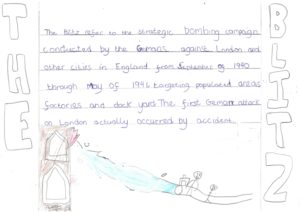 THE
The Blitz refer to the strategic bombing campaign
conducted by the Germans against London and
other cities in England from September of 1940
through May of 1941 targeting populated areas
factories and dock yard The first German attack
on London actually occurred by accident.
BLITZ